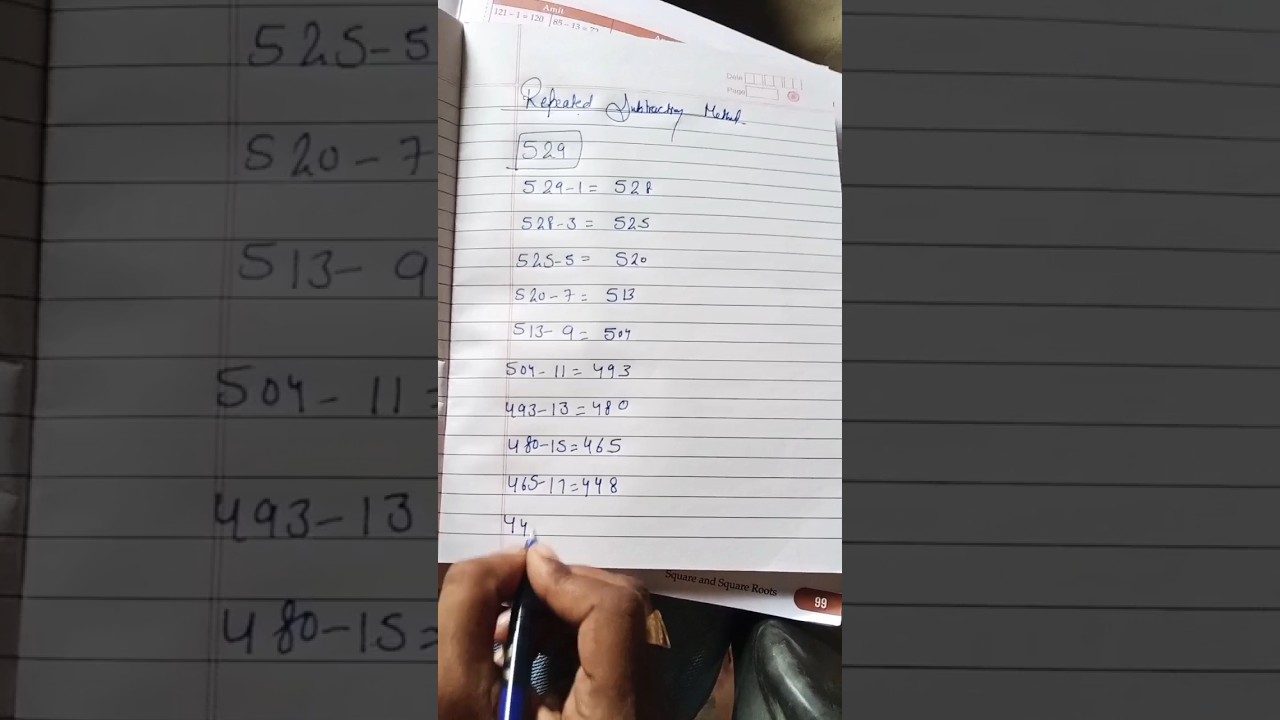 Amit
121 - 1 = 120 85 - 13 = 72
Date
Page
Repeated Subtraction Method.
529
529-1 = 528
528-3 = 525
525-5 = 520
520-7 = 513
513-9 = 504
504-11 = 493
493-13 = 480
480-15 = 465
465-17 = 448
44
Square and Square Roots
99
525-5
520-7
513-9
504-11 =
493-13
480-15=